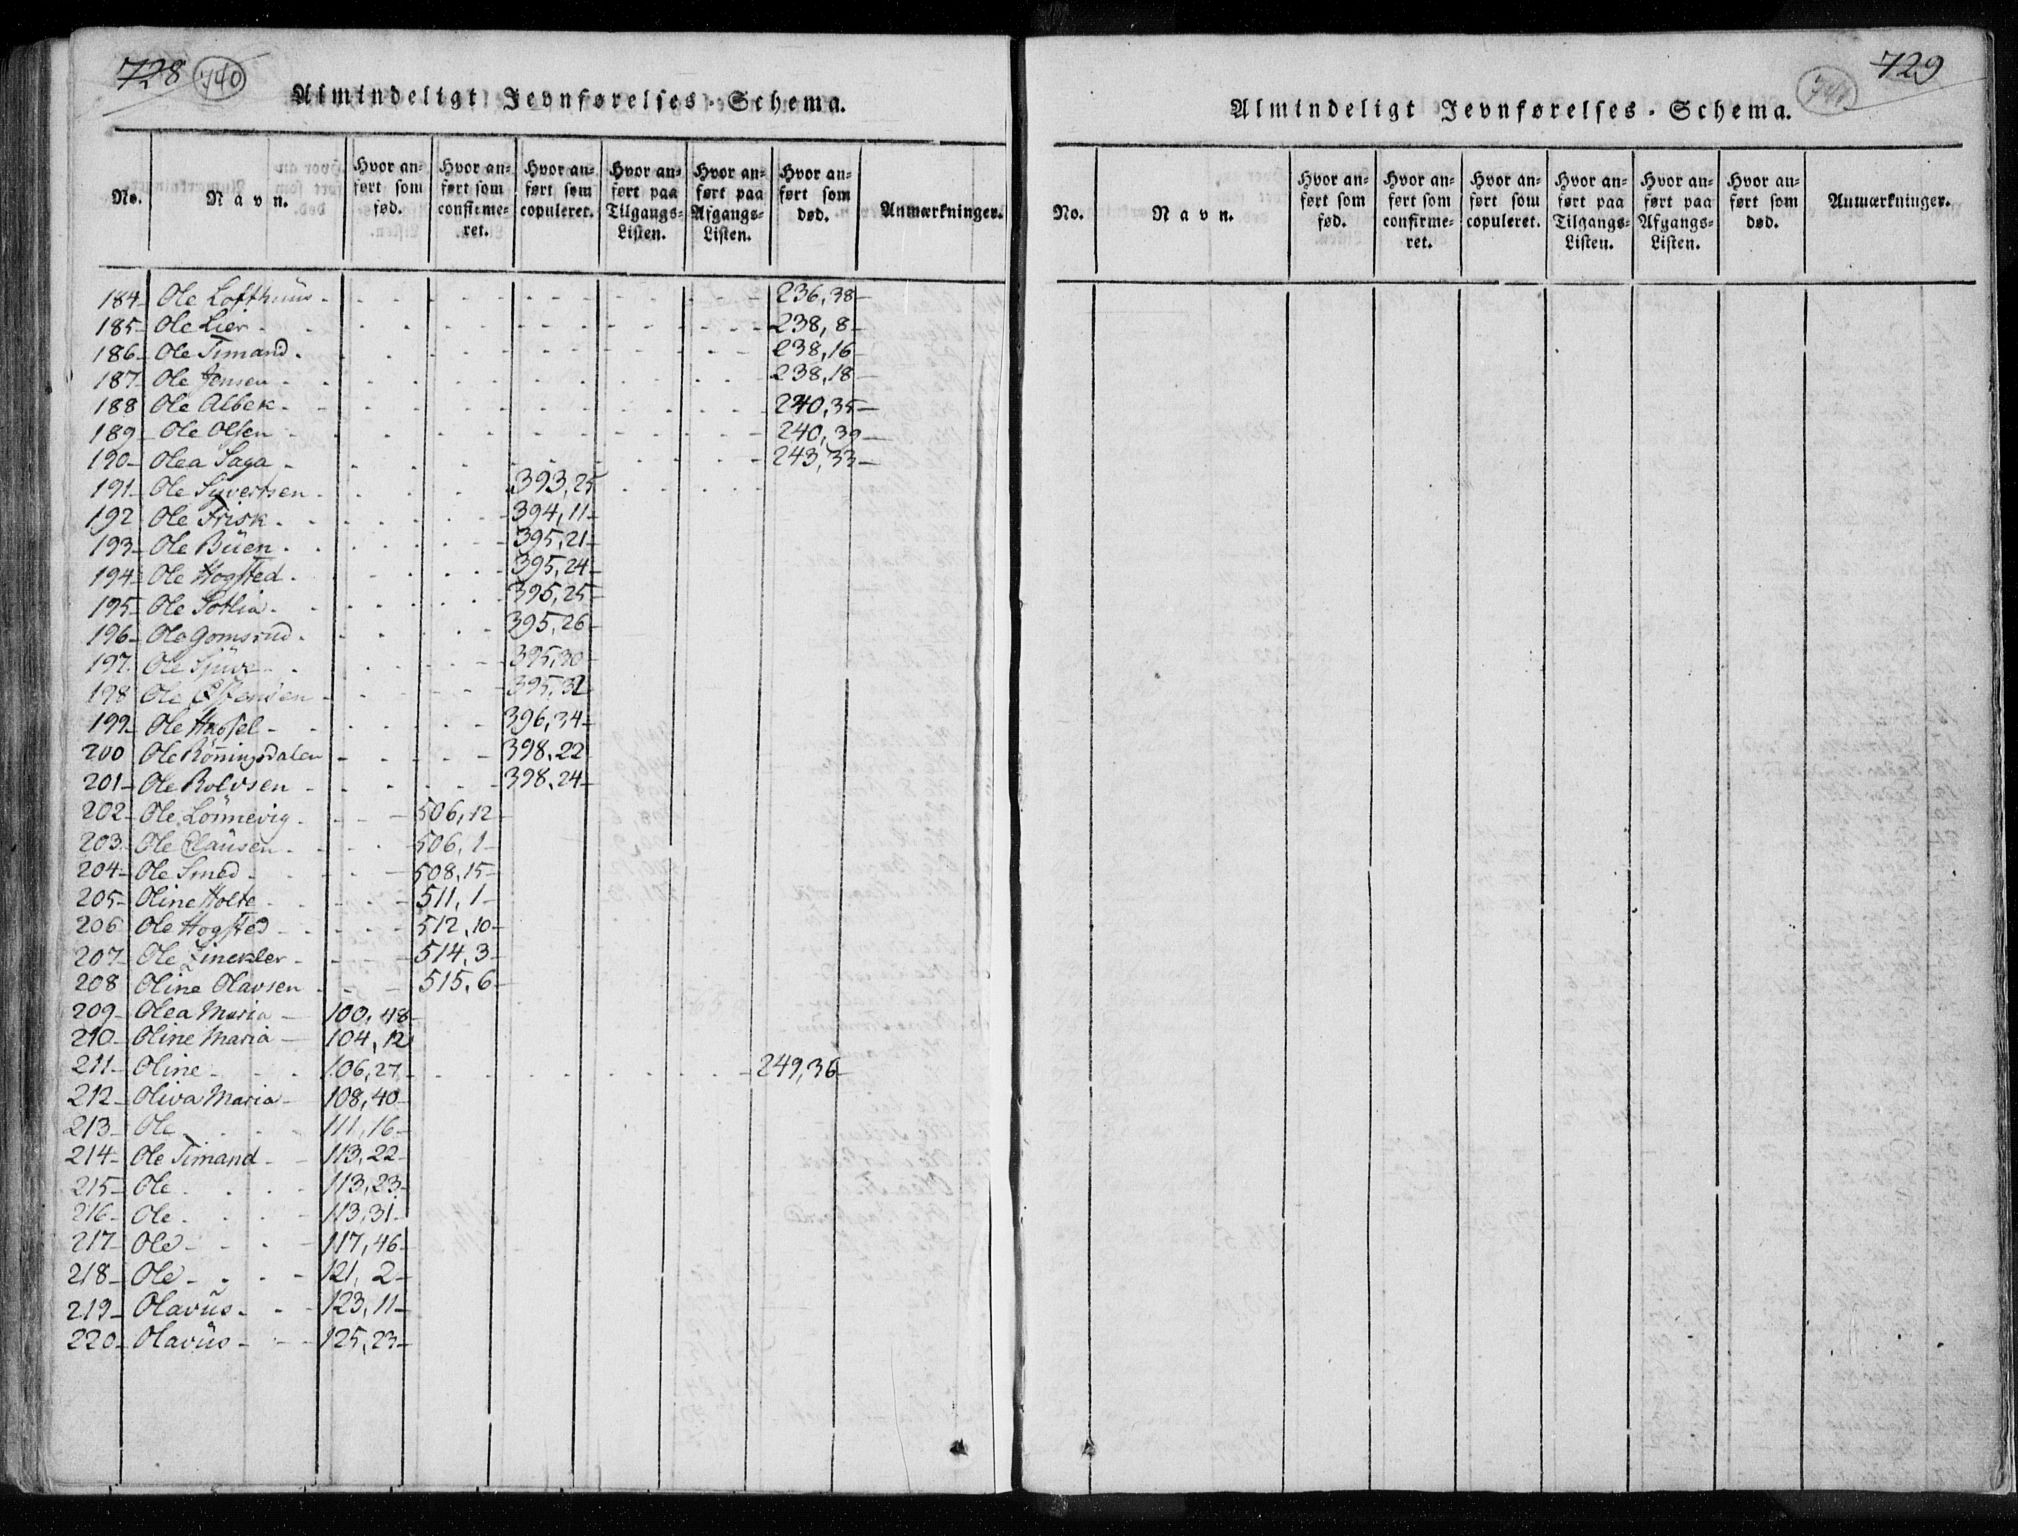 728 740
Almindeligt Jevnførelses-Schema.
No. Navn. Hvor anført som fød. Hvor anført som confirmeret. Hvor anført som copuleret. Hvor anført paa Tilgangs-Listen. Hvor anført paa Afgangs-Listen. Hvor anført som død. Anmærkninger.
184 Ole Lofthuus 236,38
185 Ole Lier 238,8
186 Ole Timand 238,16
187 Ole Jensen 238,18
188 Ole Albek 240,35
189 Ole Olsen 240,39
190 Olea Saga 243,33
191 Ole Syvertsen 393,25
192 Ole Frisk 394,11
193 Ole Büen 395,21
194 Ole Hogsted 395,24
195 Ole Sotlia 395,25
196 Ole Gomsrud 395,26
197 Ole 395,30
198 Ole
199 Ole Hassel 396,34
200 Ole Rönningsdalen 398,22
201 Ole Rolvsen 398,24
202 Ole Lönnevig 506,12
203 Ole Clausen 506,1
204 Ole Smed 508,15
205 Oline Holte 511,1
206 Ole Hogsted 512,10
207 Ole Zinckler 514,3
208 Oline Olavsen 515,6
209 Olea Maria 100,48
210 Oline Maria 104,12
211 Oline 106,27 249,36
212 Oliva Maria 108,40
213 Ole 111,16
214 Ole Timand 113,22
215 Ole 113,23
216 Ole 113,31
217 Ole 117,46
218 Ole 121,2
219 Olavus 123,11
220 Olavus 125,23
729 741
Almindeligt Jevnførelses-Schema.
No. Navn. Hvor anført som fød. Hvor anført som confirmeret. Hvor anført som copuleret. Hvor anført paa Tilgangs-Listen. Hvor anført paa Afgangs-Listen. Hvor anført som død. Anmærkninger.